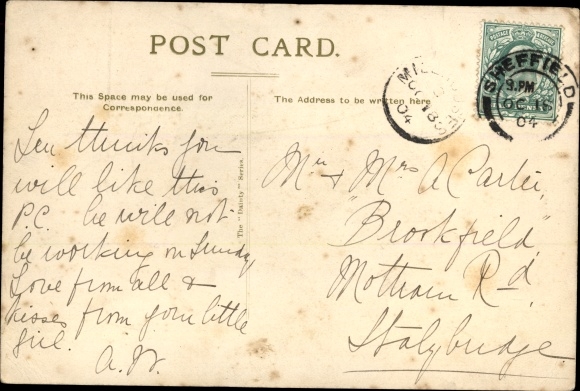 POST CARD.
This Space may be used for
Correspondence.
The Address to be written here
Len thinks you
will like this
P.C. he will not
be working on Sunday
Love from all &
kisses from your little
girl.
A.W.
The "Dainty" Series.
Mr & Mrs A Carter,
"Brookfield"
Mottram Rd
Stalybridge
SHEFFIELD
9.PM
OC 16
04
OC 18
04